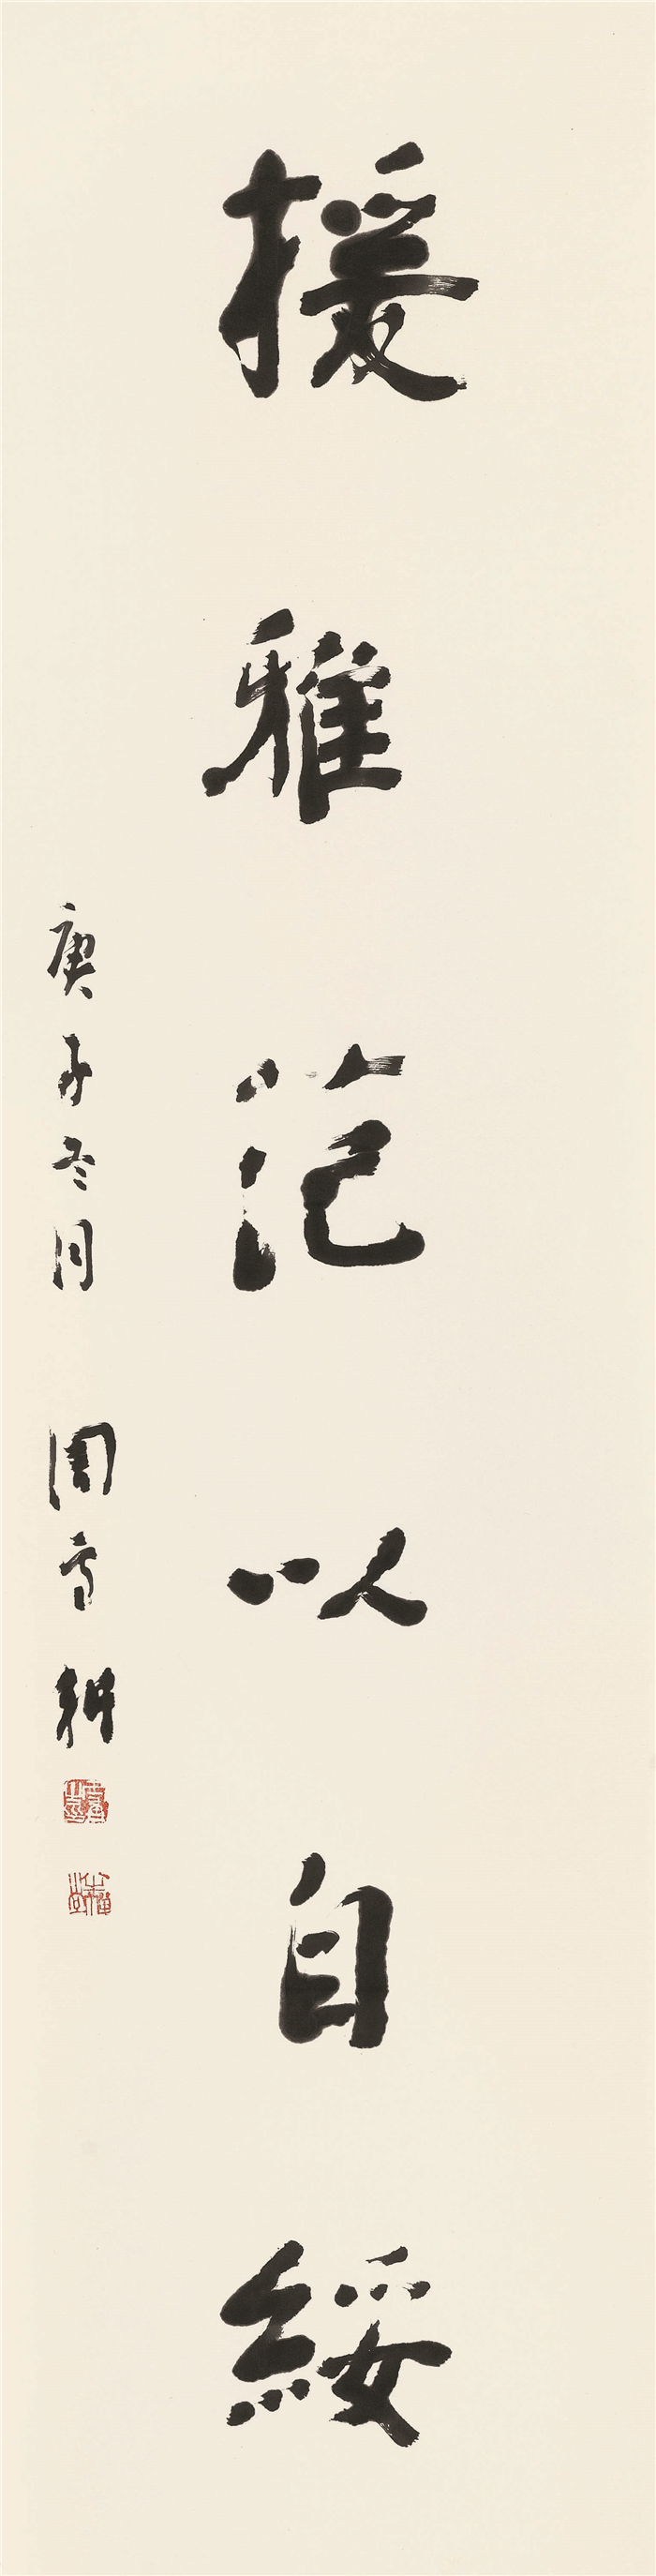 援雅范以自綏
庚子冬月 周雪耕